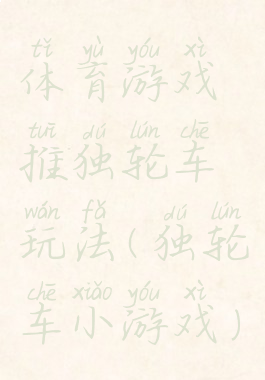 tǐ yù yóu xì
体育游戏
tuī dú lún chē
推独轮车
wán fǎ dú lún
玩法(独轮
chē xiǎo yóu xì
车小游戏)